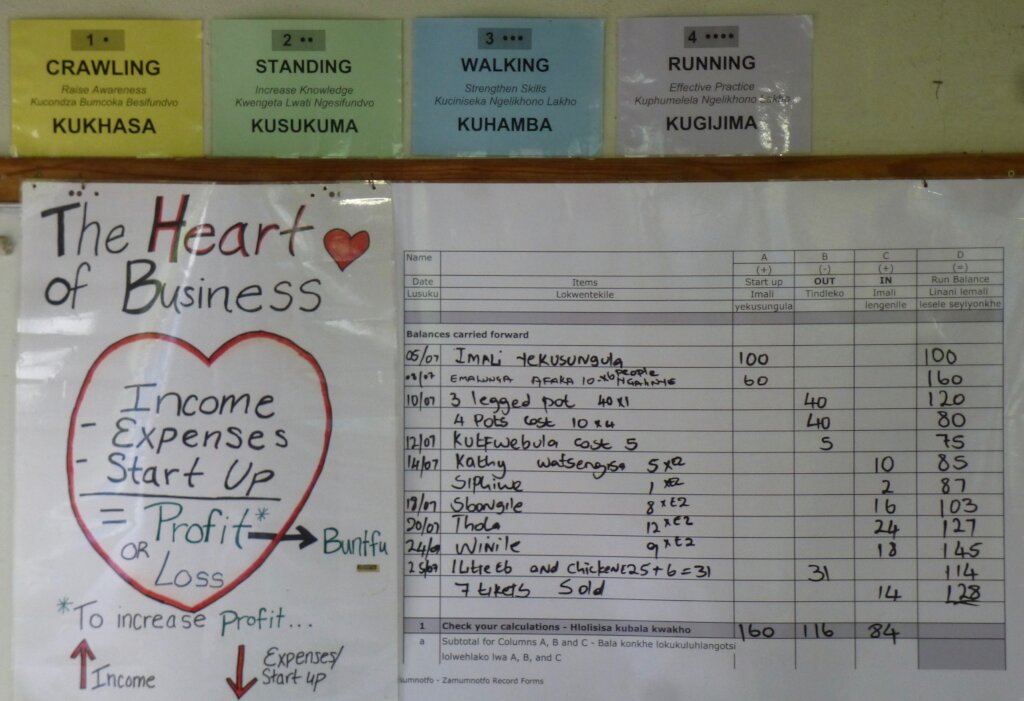 1 •
CRAWLING
Raise Awareness
Kucondza Bumcoka Besifundvo
KUKHASA
2 ••
STANDING
Increase Knowledge
Kwengeta Lwati Ngesifundvo
KUSUKUMA
3 •••
WALKING
Strengthen Skills
Kuciniseka Ngelikhono Lakho
KUHAMBA
4 ••••
RUNNING
Effective Practice
Kuphumelela Ngelikhono Lakho
KUGIJIMA
7
The Heart
of Business
Income
- Expenses
- Start Up
= Profit* → Buntfu
OR
Loss
*To increase Profit...
Income
Expenses/
Start up
Name A B C D
(+) (-) (+) (=)
Date Items Start up OUT IN Run Balance
Lusuku Lokwentekile Imali Tindleko Imali Linani lemali
yekusungula lengenile lesele seyiyonkhe
Balances carried forward
05/07 Imali yekusungula 100 100
EMALUNGA AFAKA 10 x6 PEOPLE 60 160
10/07 3 legged pot 40x1 40 120
4 Pots cost 10 x 4 40 80
12/07 Kutfwebula cost 5 5 75
14/07 Kathy watsengisa 5 xE2 10 85
Siphiwe 1 xE2 2 87
18/07 Sbongile 8 xE2 16 103
20/07 Thola 12 xE2 24 127
Winile 9 xE2 18 145
25/07 and chicken E25 + 6 = 31 31 114
7 Sold 14 128
1 Check your calculations - Hlolisisa kubala kwakho 160 116 84
a Subtotal for Columns A, B and C - Bala konkhe lokukuluhlangotsi
lolwehlako lwa A, B, and C
- Zamumnotfo Record Forms